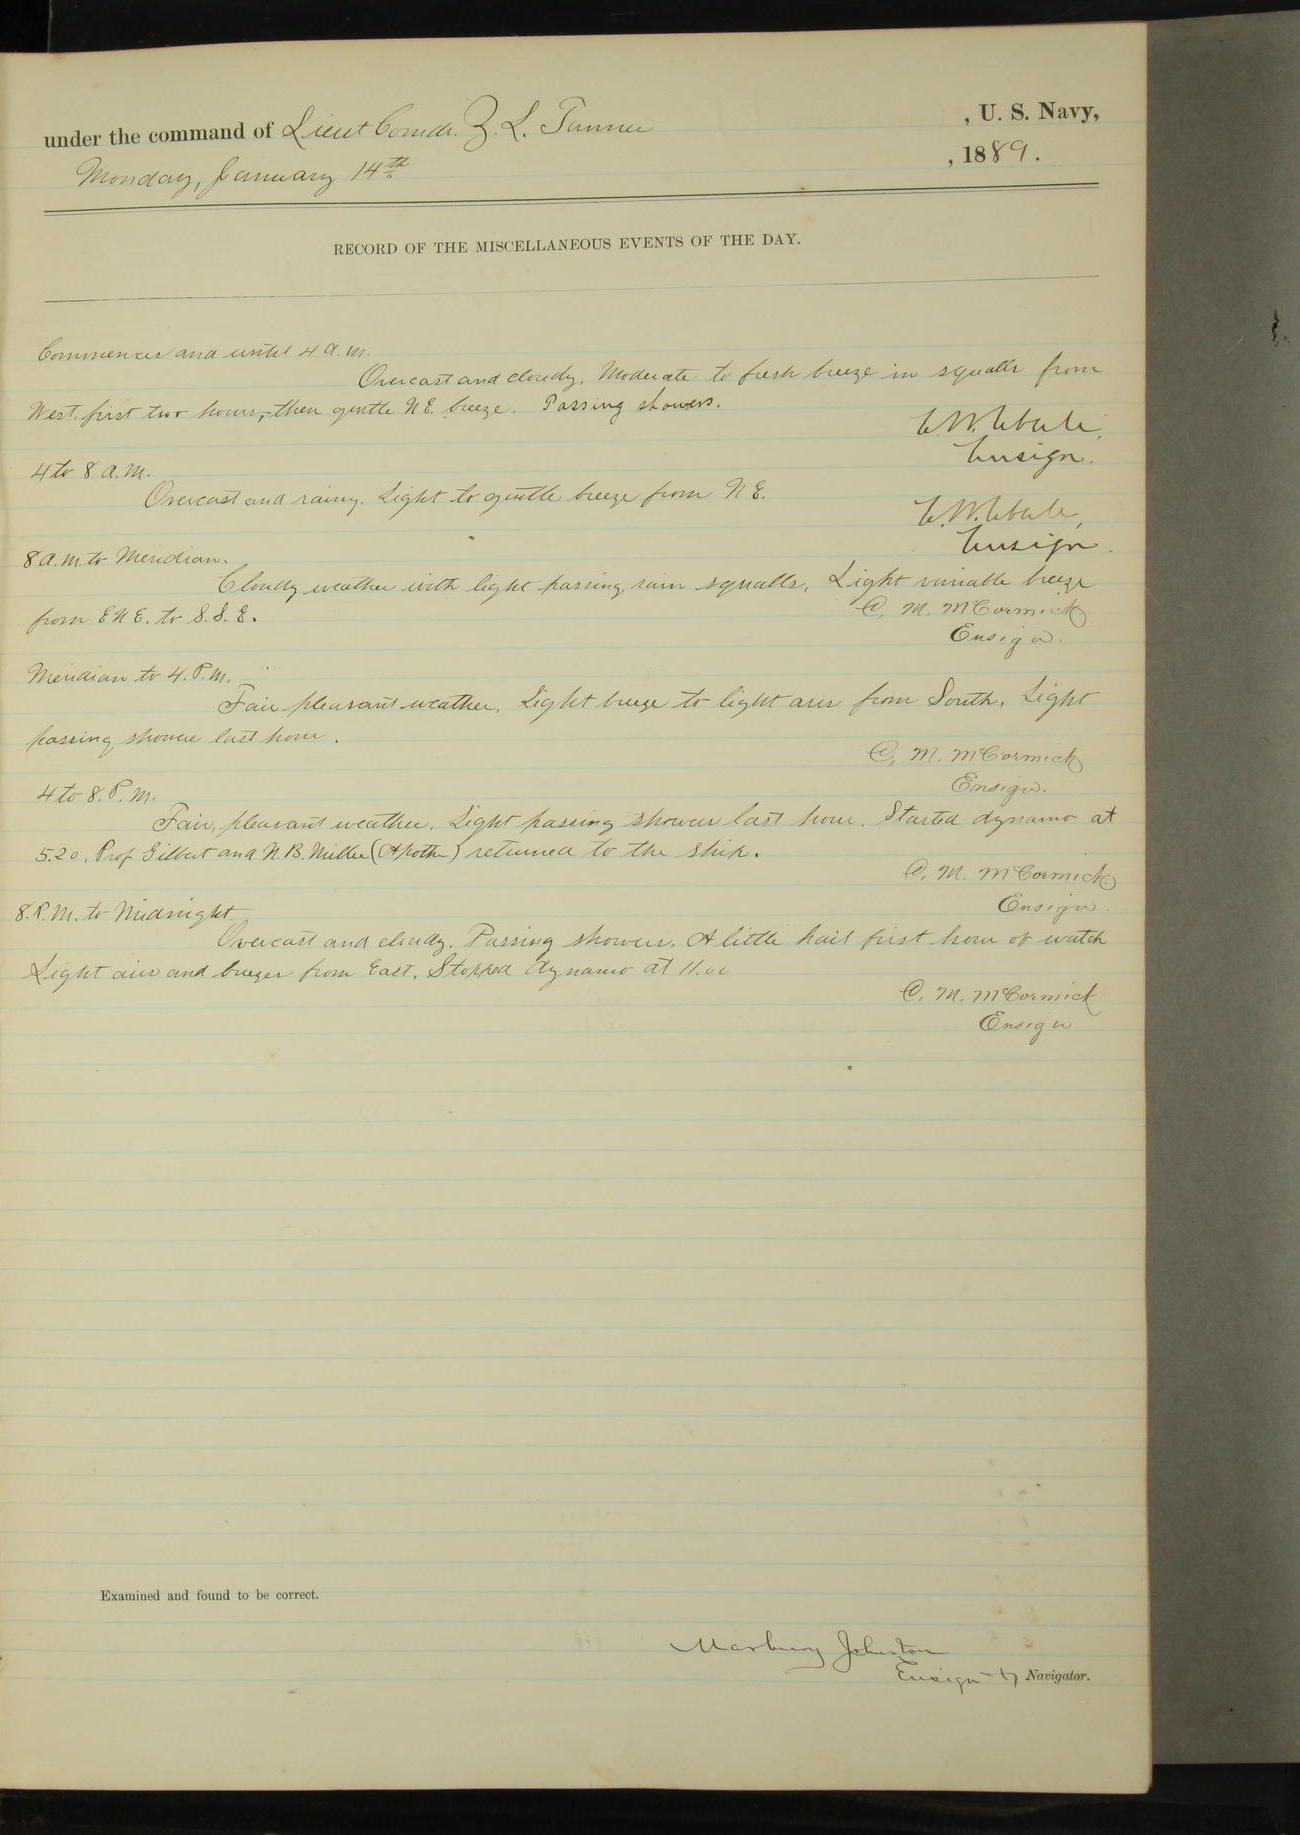 under the command of Lieut Comdr. Z. L. Tanner , U. S. Navy,
Monday, January 14th , 1889.
RECORD OF THE MISCELLANEOUS EVENTS OF THE DAY.
Commences and until 4 a.m.
Overcast and cloudy. Moderate to fresh breeze in squalls from
West. first two hours, then gentle N.E. breeze. Passing showers.
E. W. Eberle,
Ensign.
4 to 8 a.m.
Overcast and rainy. Light to gentle breeze from N.E.
E. W. Eberle,
Ensign.
8 a.m. to Meridian.
Cloudy weather with light passing rain squalls. Light variable breeze
from E.N.E. to S.S.E.
C. M. McCormick
Ensign.
Meridian to 4. P.M.
Fair pleasant weather. Light breeze to light airs from South. Light
passing shower last hour.
C. M. McCormick
Ensign.
4 to 8. P.M.
Fair, pleasant weather. Light passing shower last hour. Started dynamo at
5.20. Prof Gilbert and N. B. Miller (Apoth) returned to the ship.
C. M. McCormick
Ensign.
8. P.M. to Midnight
Overcast and cloudy. Passing showers. A little hail first hour of watch
Light airs and breezes from East. Stopped dynamo at 11.00
C. M. McCormick
Ensign
Examined and found to be correct.
Marbury Johnston
Ensign & Navigator.